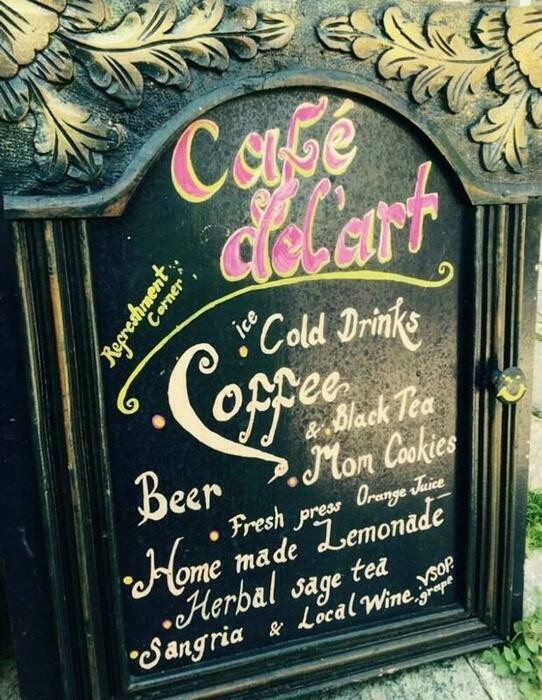 Café
del'art
Refreshment
Corner
ice Cold Drinks
Coffee
& Black Tea
Mom Cookies
Beer
Fresh press Orange Juice
Home made Lemonade
Herbal sage tea
Sangria & Local Wine VSOP.
grape